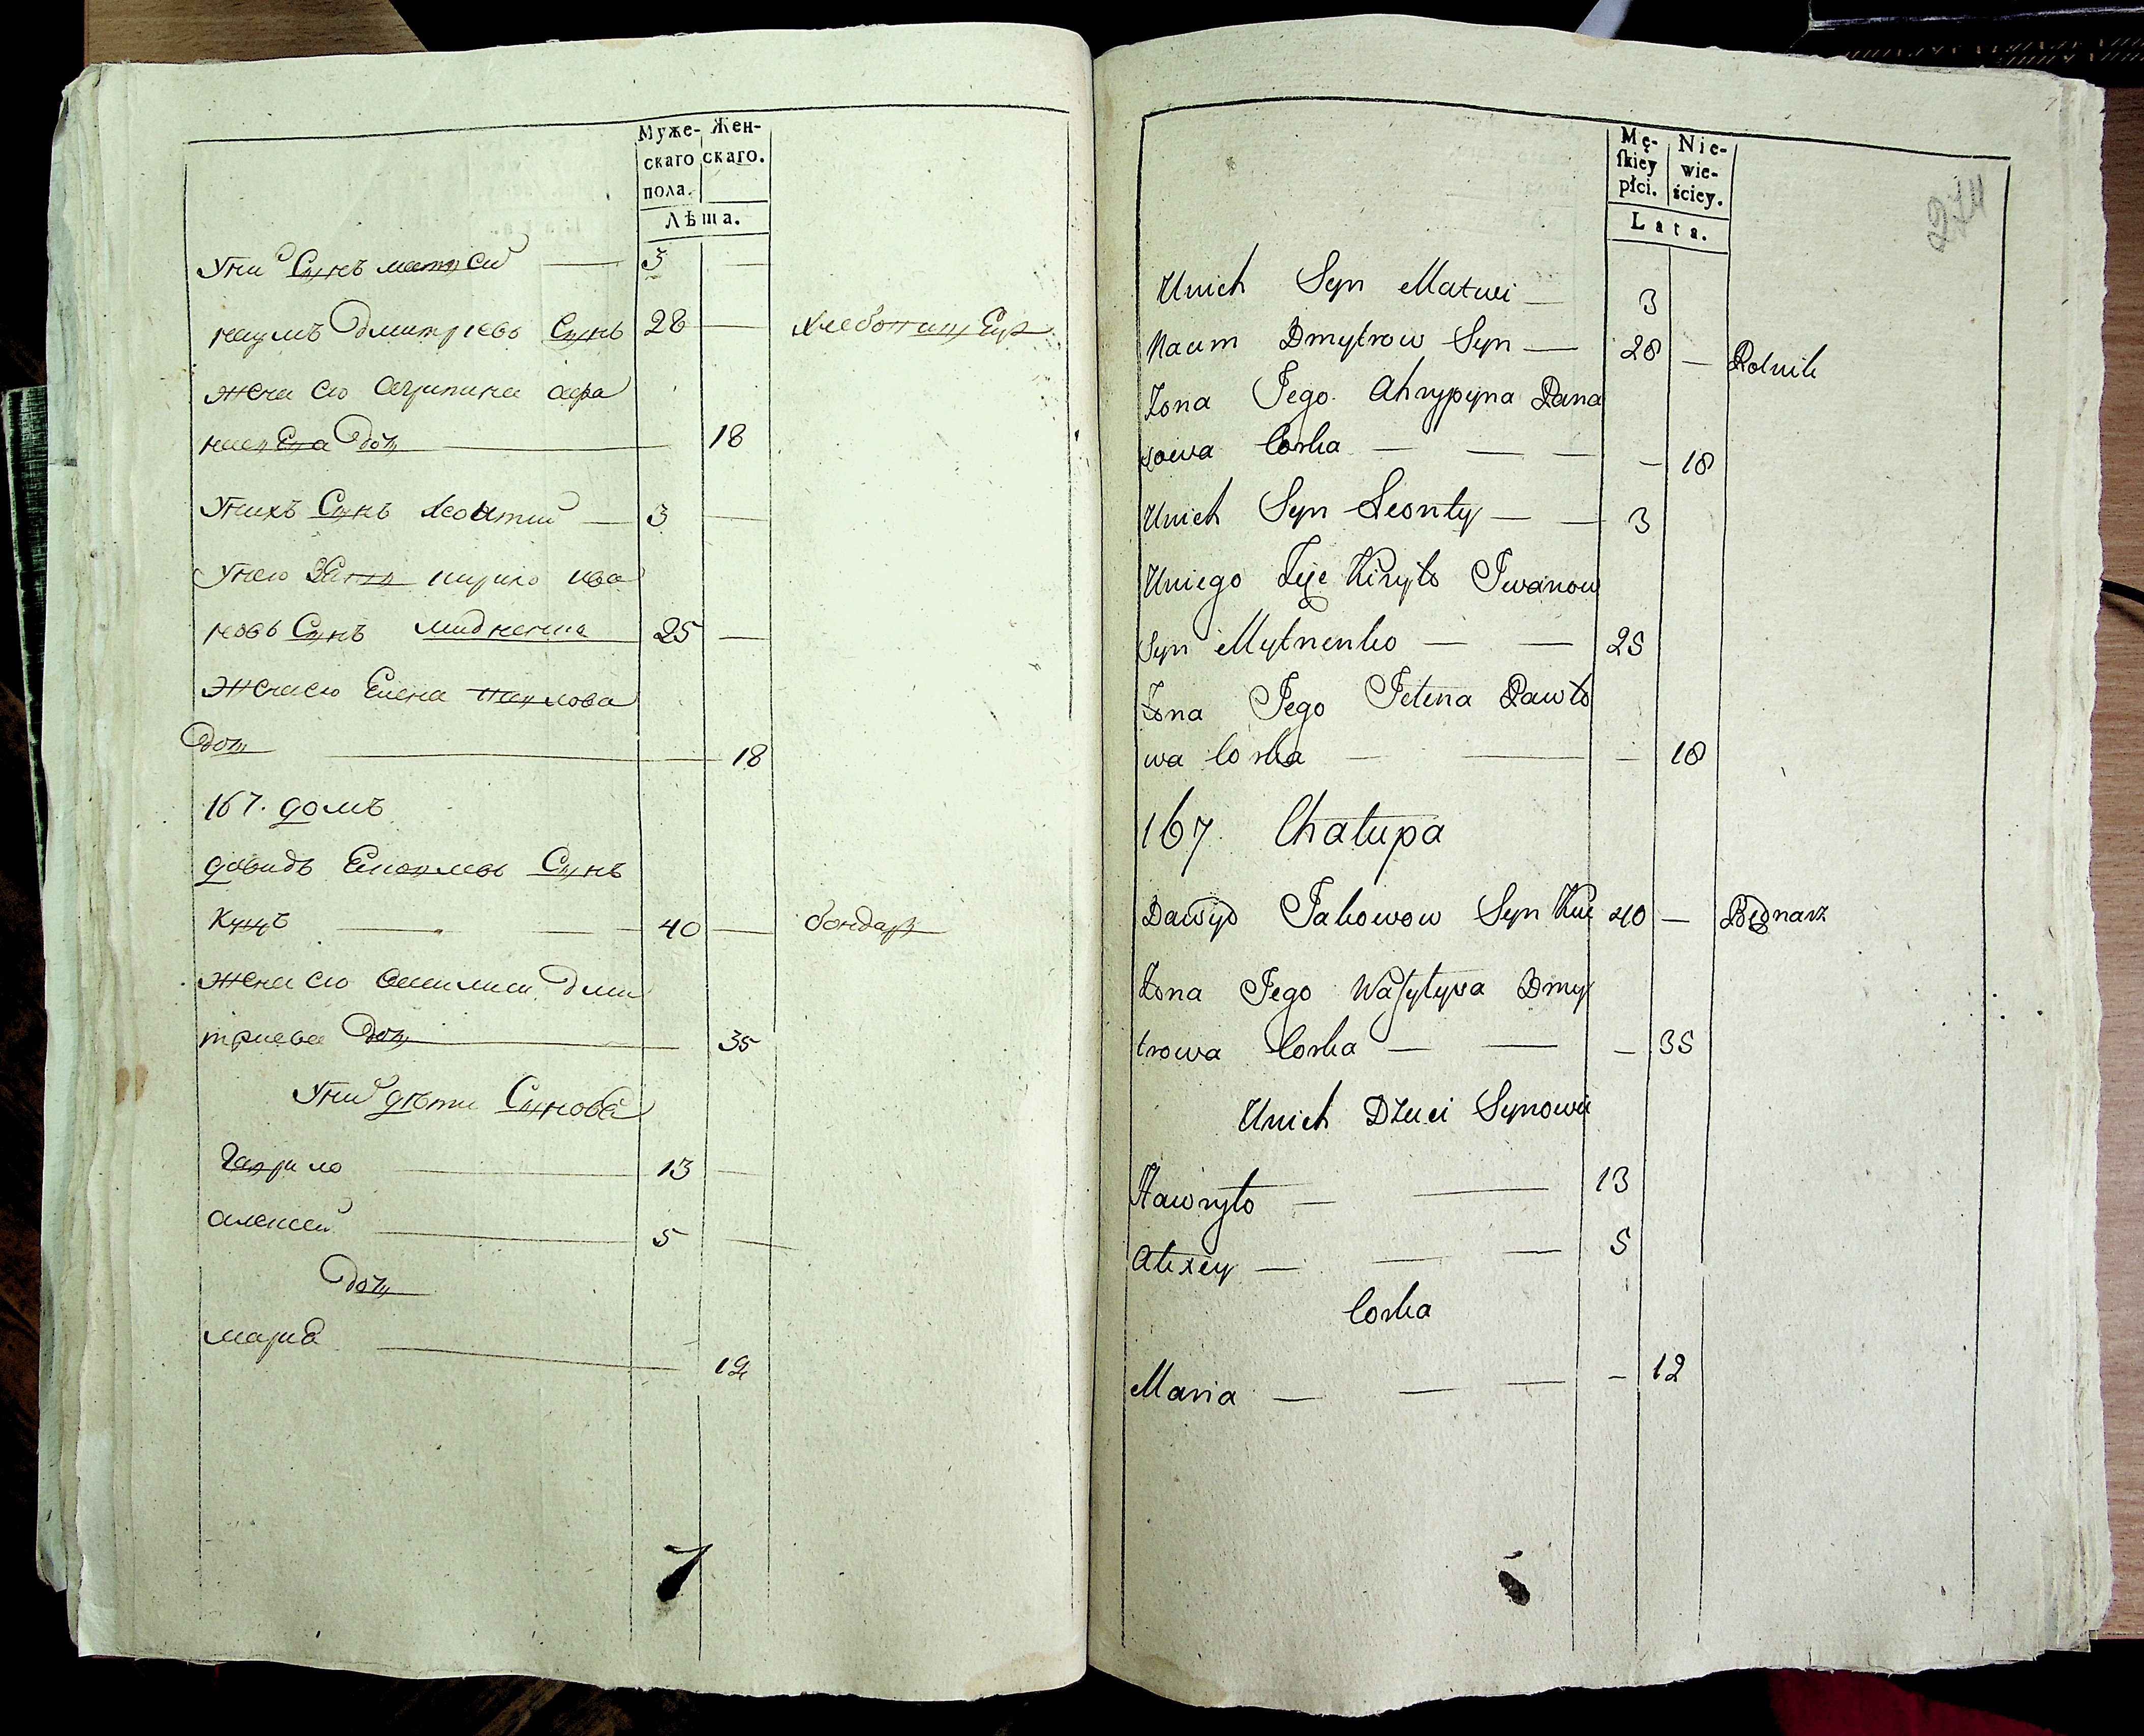 Муже- Жен-
скаго скаго.
пола.
Лѣта.
Уни Сынъ матвей — 3 —
наумъ дмитриевъ Сынъ 28 — хлебопашец
жена его агрипина афа
насева доч — 18
Унихъ Сынъ леонтий — 3 —
Унего Зять кирило ива
новъ Сынъ мидненко 25 —
Жена его Елена павлова
доч — 18
167. домъ
давидъ Сынъ
Куцъ — — — 40 — бондар
жена его василиса дми
триева доч — 35
Уни дѣти Сыновя
Гаврило — 13 —
алексей — 5 —
доч
мария — 12
Mę- Nie-
skiey wie-
płci. ściey.
Lata.
274
Unich Syn Matwi — 3
Naum Dmytrow Syn — 28 — Rolnik
Żona Jego Ahrypyna Pana
sowa Corka — — — — 18
Unich Syn Leonty — — 3
Uniego Zięc Kiryło Iwanow
Syn Mytnenko — — 25
Żona Jego Jelena Pawło
wa Corka — — — 18
167 Chałupa
Dawyd Jakowow Syn Kuc 40 — Bednarz
Żona Jego Wasylysa Dmy
trowa Corka — — — 35
Unich Dzieci Synowie
Hawryło — — 13
Alexey — — — 5
Corka
Maria — — — — 12